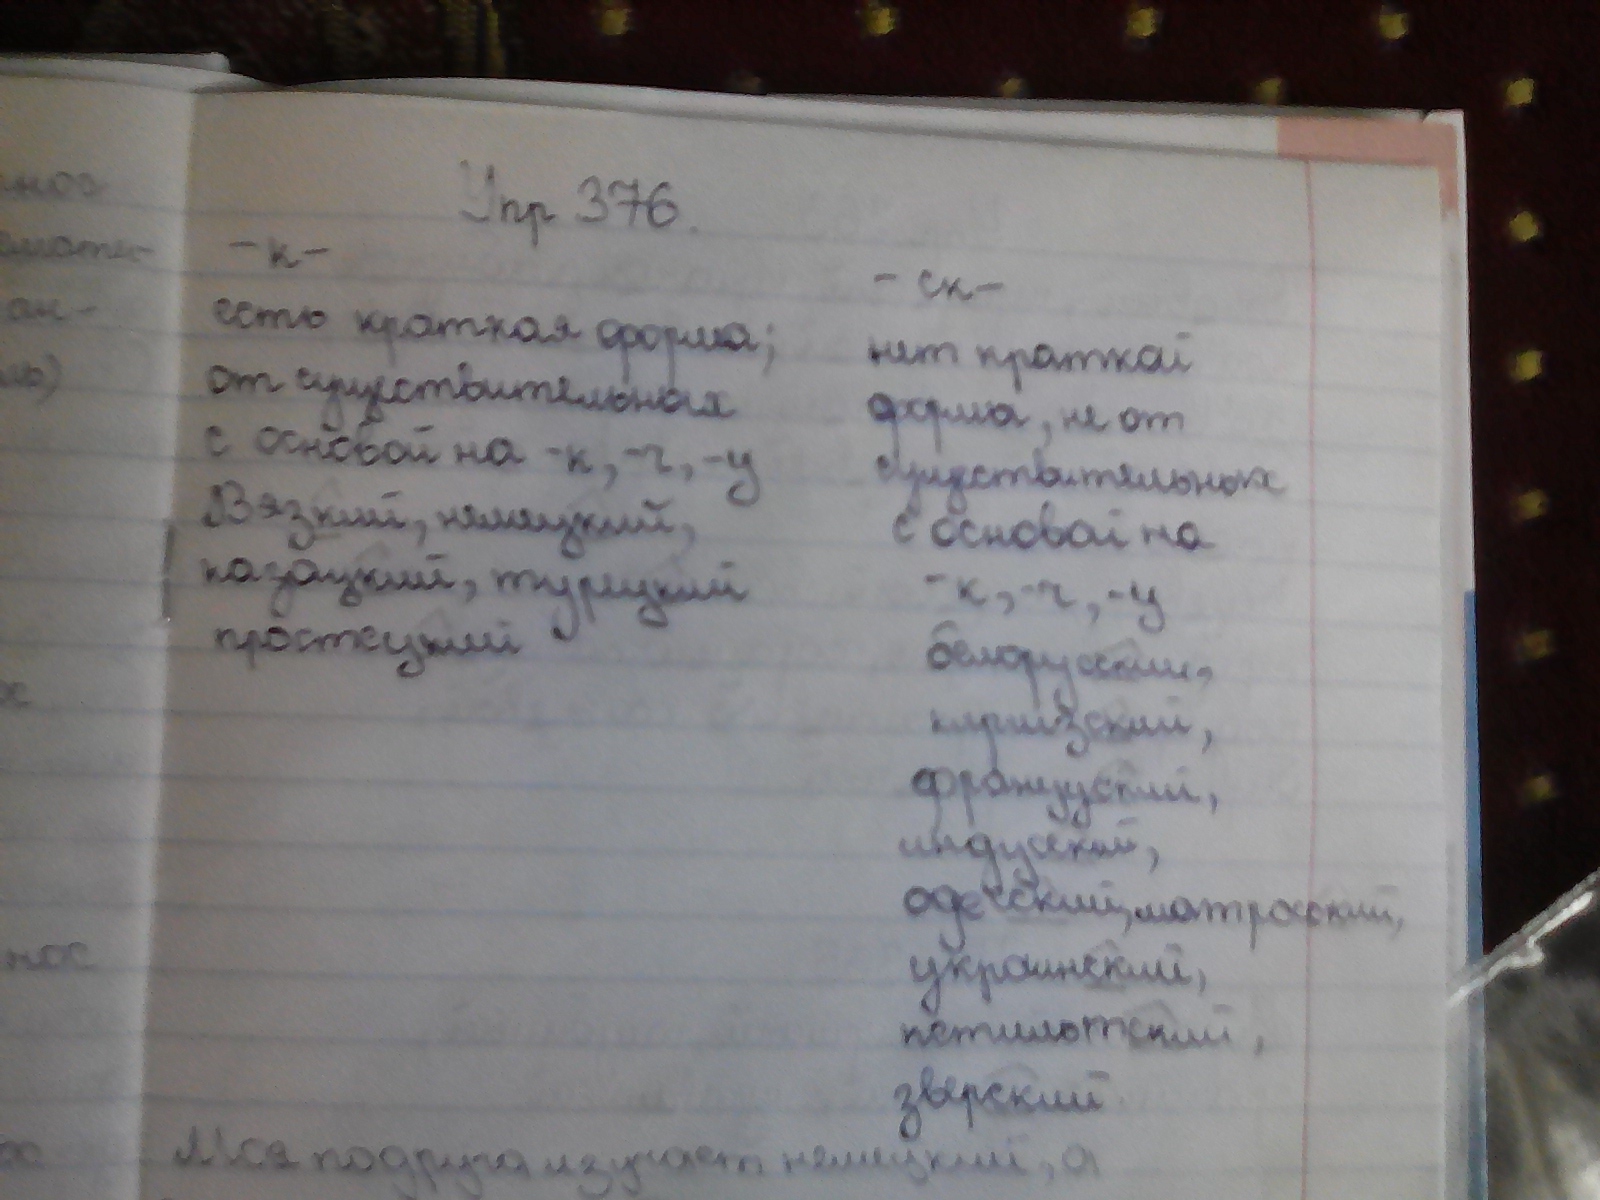 Упр 376.
-к-
есть краткая форма;
от существительных
с основой на -к, -ч, -ц
Вязкий, немецкий,
казацкий, турецкий
простецкий
-ск-
нет краткой
форма, не от
существительных
с основой на
-к, -ч, -ц
белорусский,
киргизский,
французский,
индусский,
одесский, матросский,
украинский,
зверский
Моя подруга изучает немецкий, а
ног
ан-
нос